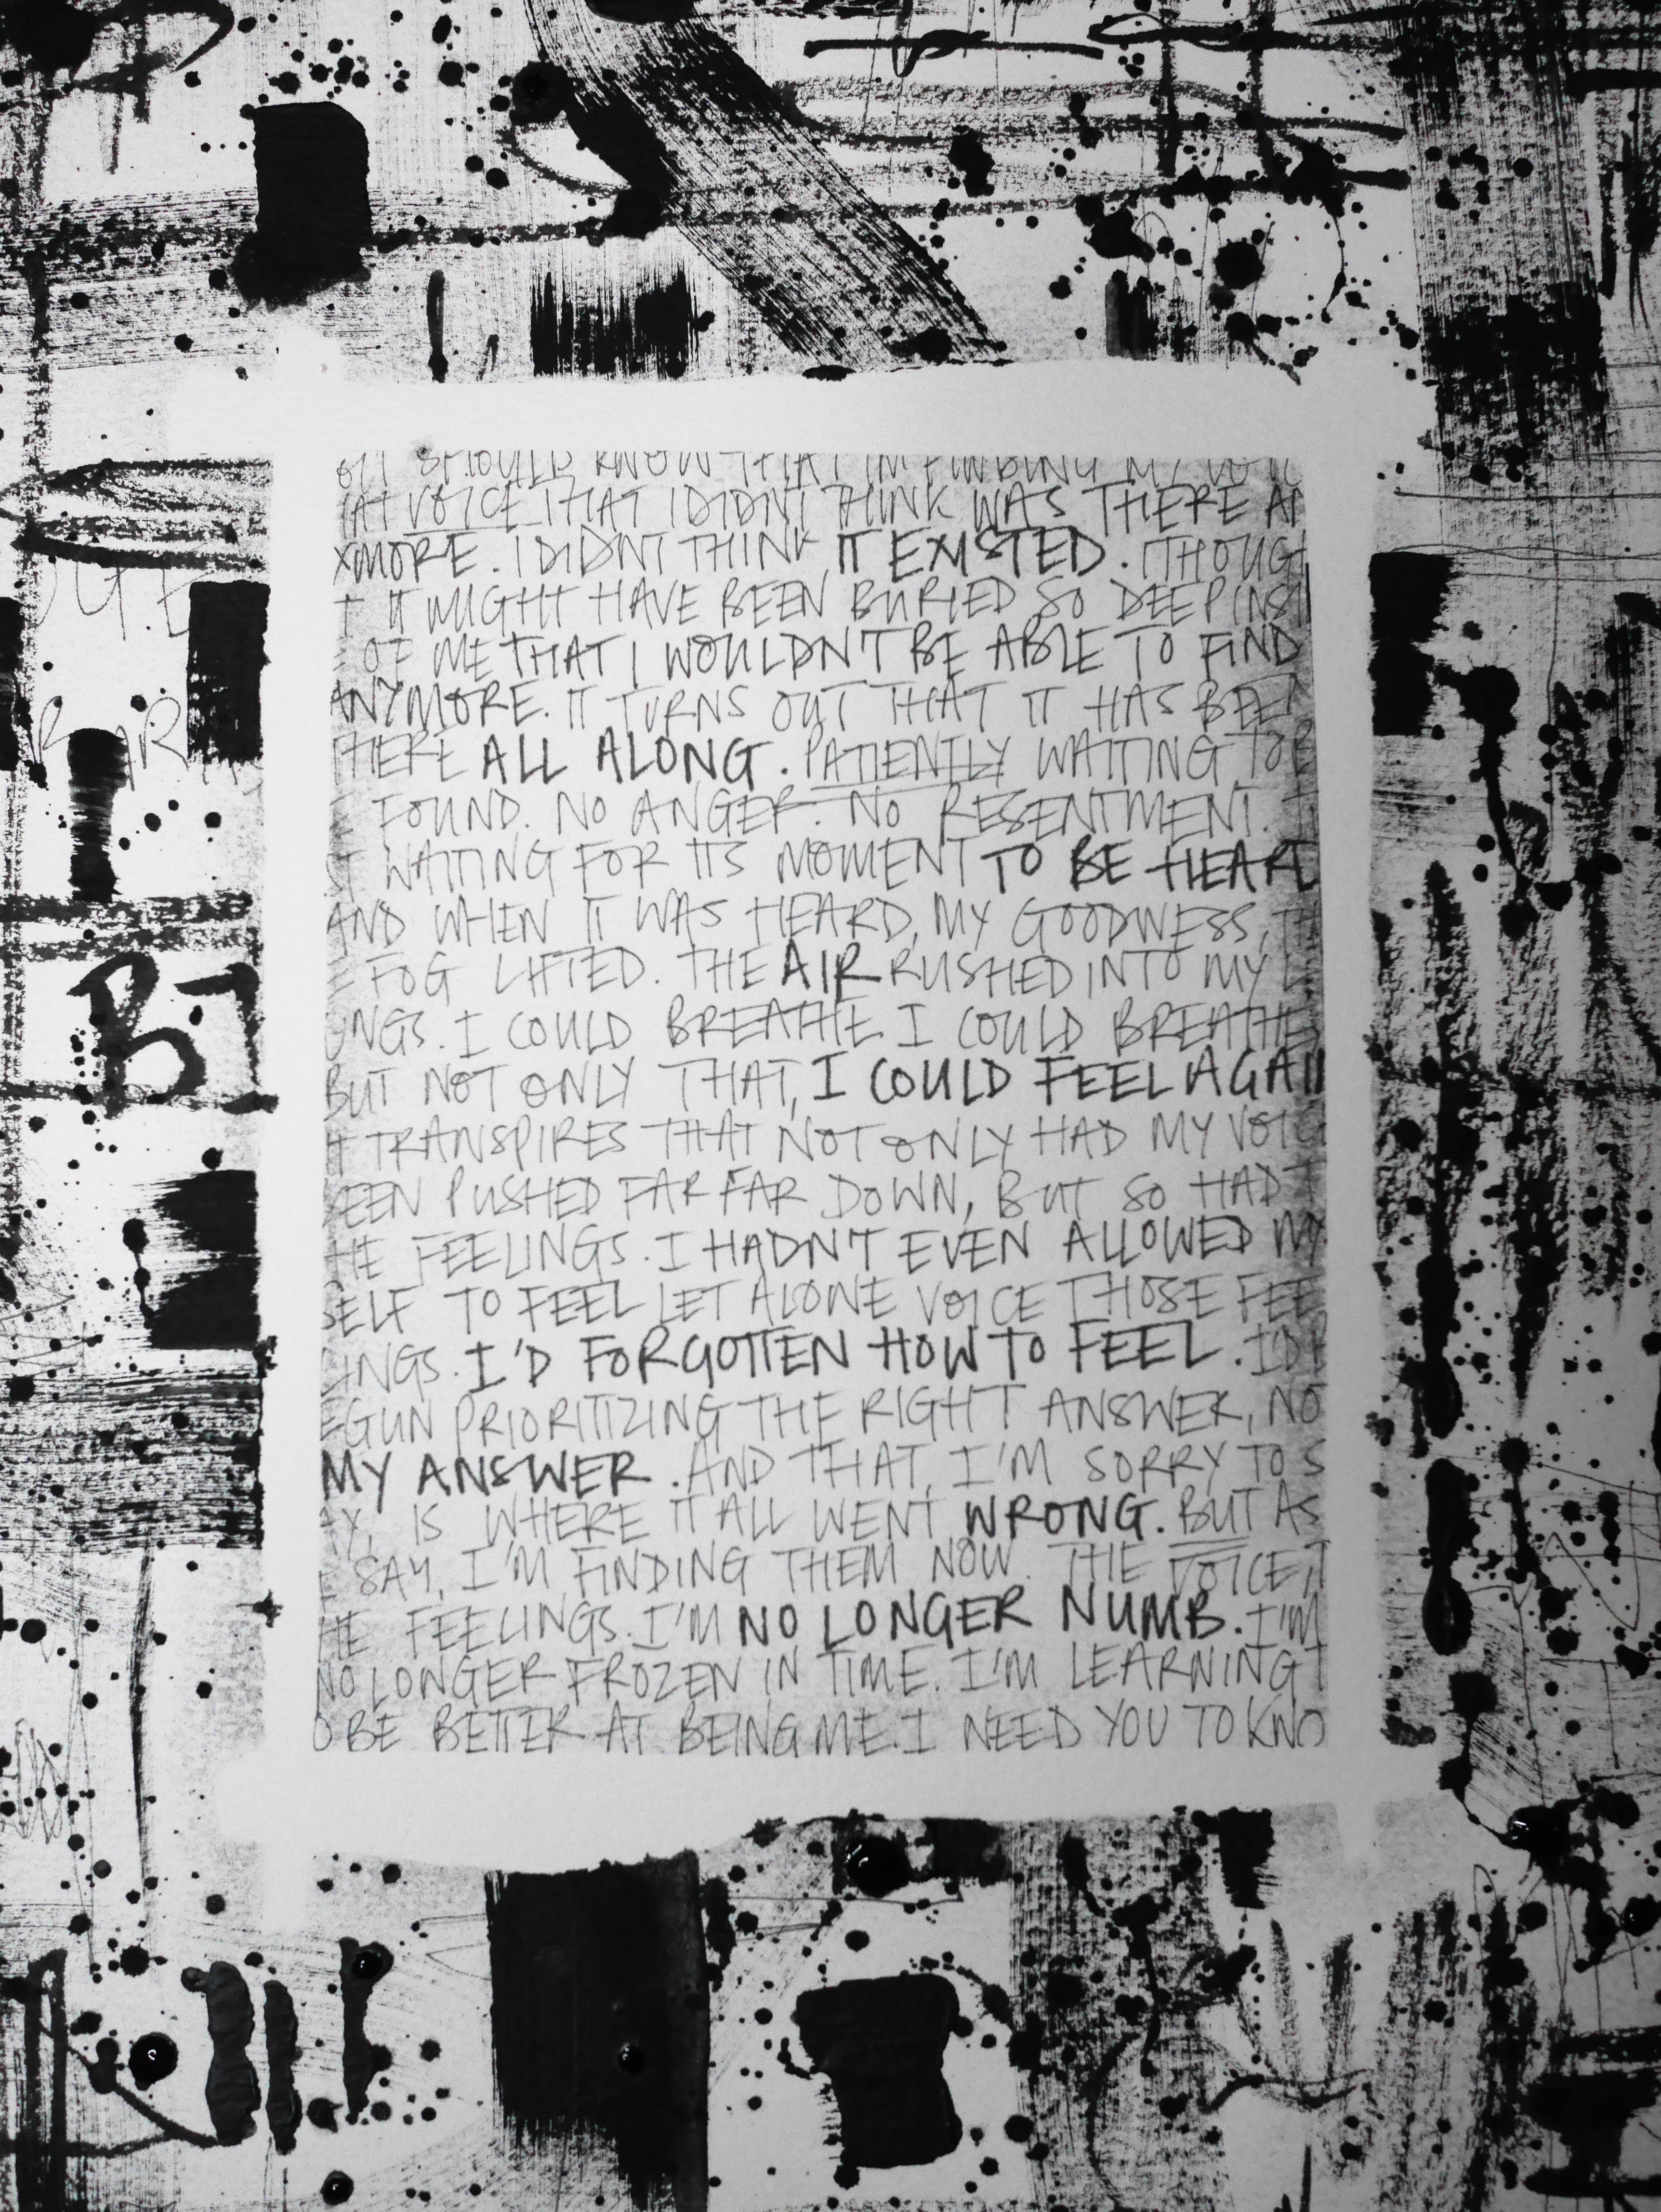 SHOULD KNOW THAT I'M FINDING MY VOIC
AT VOICE THAT I DIDN'T THINK WAS THERE AN
YMORE. I DIDN'T THINK IT EXISTED. I THOUG
T IT MIGHT HAVE BEEN BURIED SO DEEP INSI
E OF ME THAT I WOULDN'T BE ABLE TO FIND
ANYMORE. IT TURNS OUT THAT IT HAS BEEN
THERE ALL ALONG. PATIENTLY WAITING TO B
E FOUND. NO ANGER. NO RESENTMENT.
ST WAITING FOR ITS MOMENT TO BE HEARD
AND WHEN IT WAS HEARD, MY GOODNESS, TH
E FOG LIFTED. THE AIR RUSHED INTO MY L
UNGS. I COULD BREATHE. I COULD BREATHE
BUT NOT ONLY THAT, I COULD FEEL AGAIN
IT TRANSPIRES THAT NOT ONLY HAD MY VOIC
BEEN PUSHED FAR FAR DOWN, BUT SO HAD T
HE FEELINGS. I HADN'T EVEN ALLOWED MY
SELF TO FEEL LET ALONE VOICE THOSE FEE
LINGS. I'D FORGOTTEN HOW TO FEEL. I'D B
EGUN PRIORITIZING THE RIGHT ANSWER, NO
MY ANSWER. AND THAT, I'M SORRY TO S
AY, IS WHERE IT ALL WENT WRONG. BUT AS
I SAY, I'M FINDING THEM NOW. THE VOICE, T
HE FEELINGS. I'M NO LONGER NUMB. I'M
NO LONGER FROZEN IN TIME. I'M LEARNING T
O BE BETTER AT BEING ME. I NEED YOU TO KNO